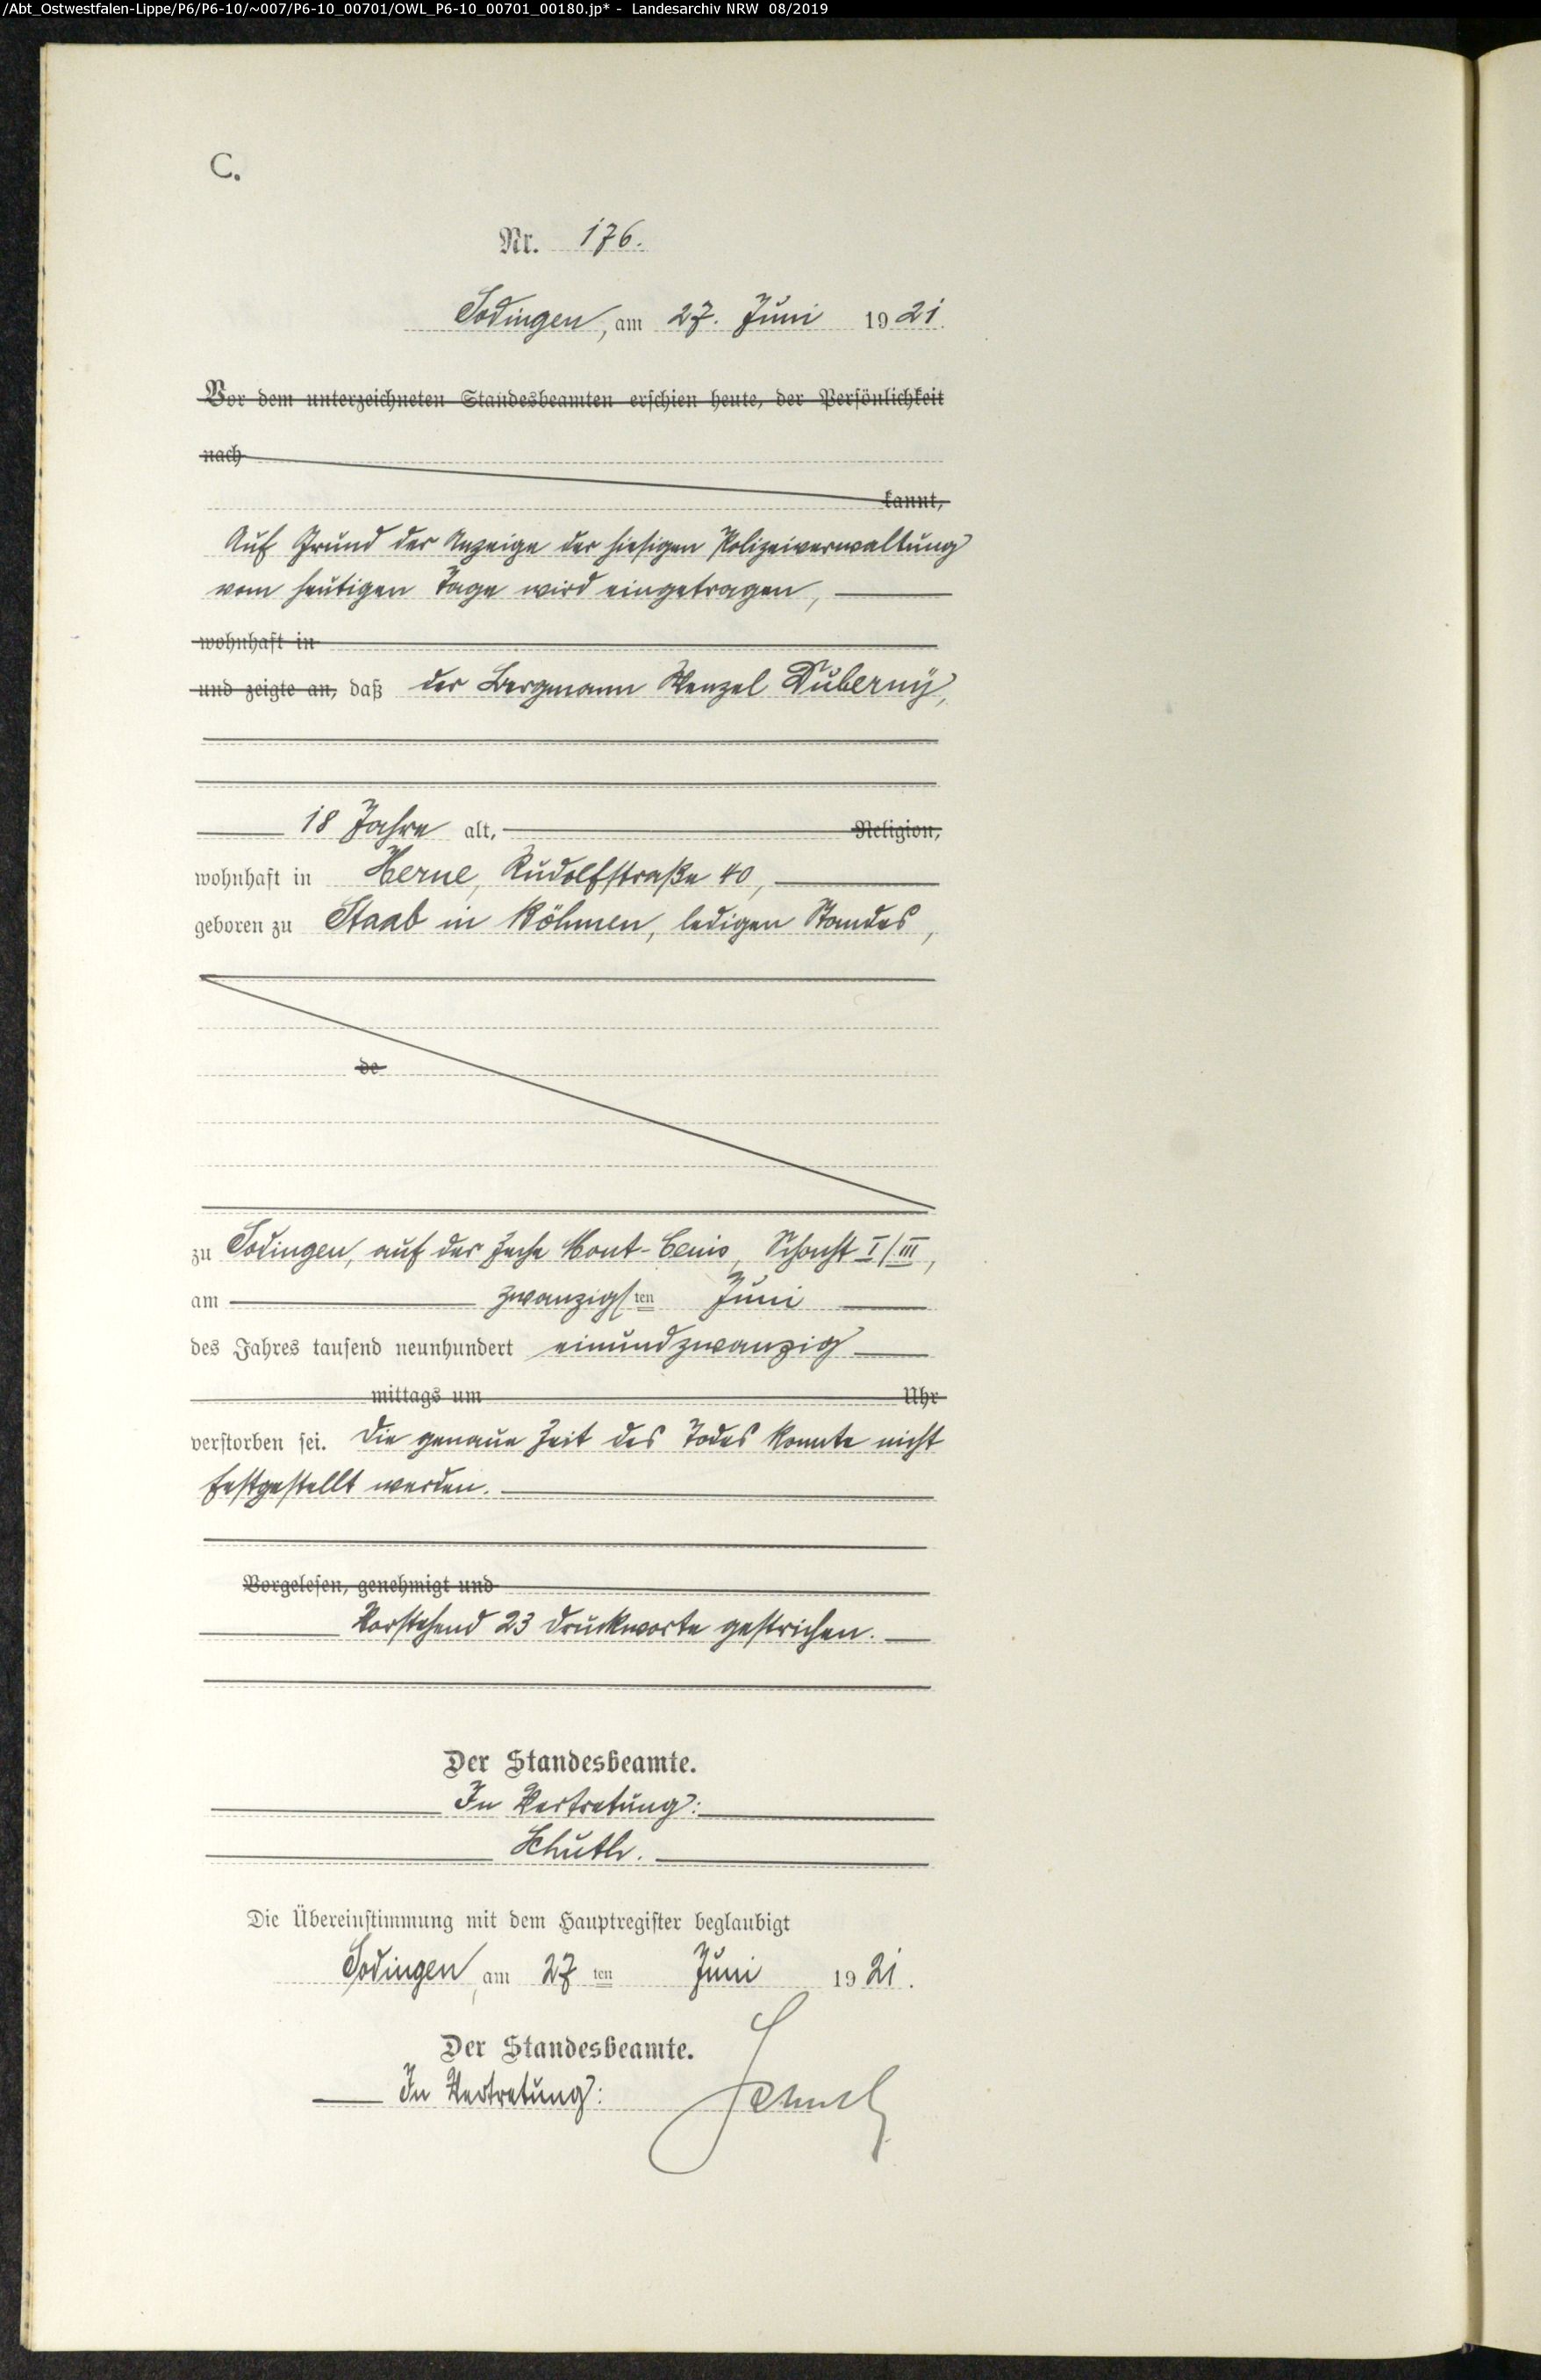 /Abt_Ostwestfalen-Lippe/P6/P6-10/~007/P6-10_00701/OWL_P6-10_00701_00180.jp* - Landesarchiv NRW 08/2019
C.
Nr. 176.
Sodingen, am 27. Juni 1921.
Vor dem unterzeichneten Standesbeamten erschien heute, der Persönlichkeit
nach
kannt,
Auf Grund der Anzeige der hiesigen Polizeiverwaltung
vom heutigen Tage wird eingetragen,
wohnhaft in
und zeigte an, daß der Bergmann Wenzel Duberny,
18 Jahre alt, Religion,
wohnhaft in Herne, Rudolfstraße 40,
geboren zu Staab in Böhmen, ledigen Standes,
de
zu Sodingen, auf der Zeche Mont-Cenis, Schacht I/III,
am zwanzigsten Juni
des Jahres tausend neunhundert einundzwanzig
mittags um Uhr
verstorben sei. Die genaue Zeit des Todes konnte nicht
festgestellt werden.
Vorgelesen, genehmigt und
Vorstehend 23 Druckworte gestrichen.
Der Standesbeamte.
In Vertretung:
Die Übereinstimmung mit dem Hauptregister beglaubigt
Sodingen, am 27ten Juni 1921.
Der Standesbeamte.
In Vertretung: